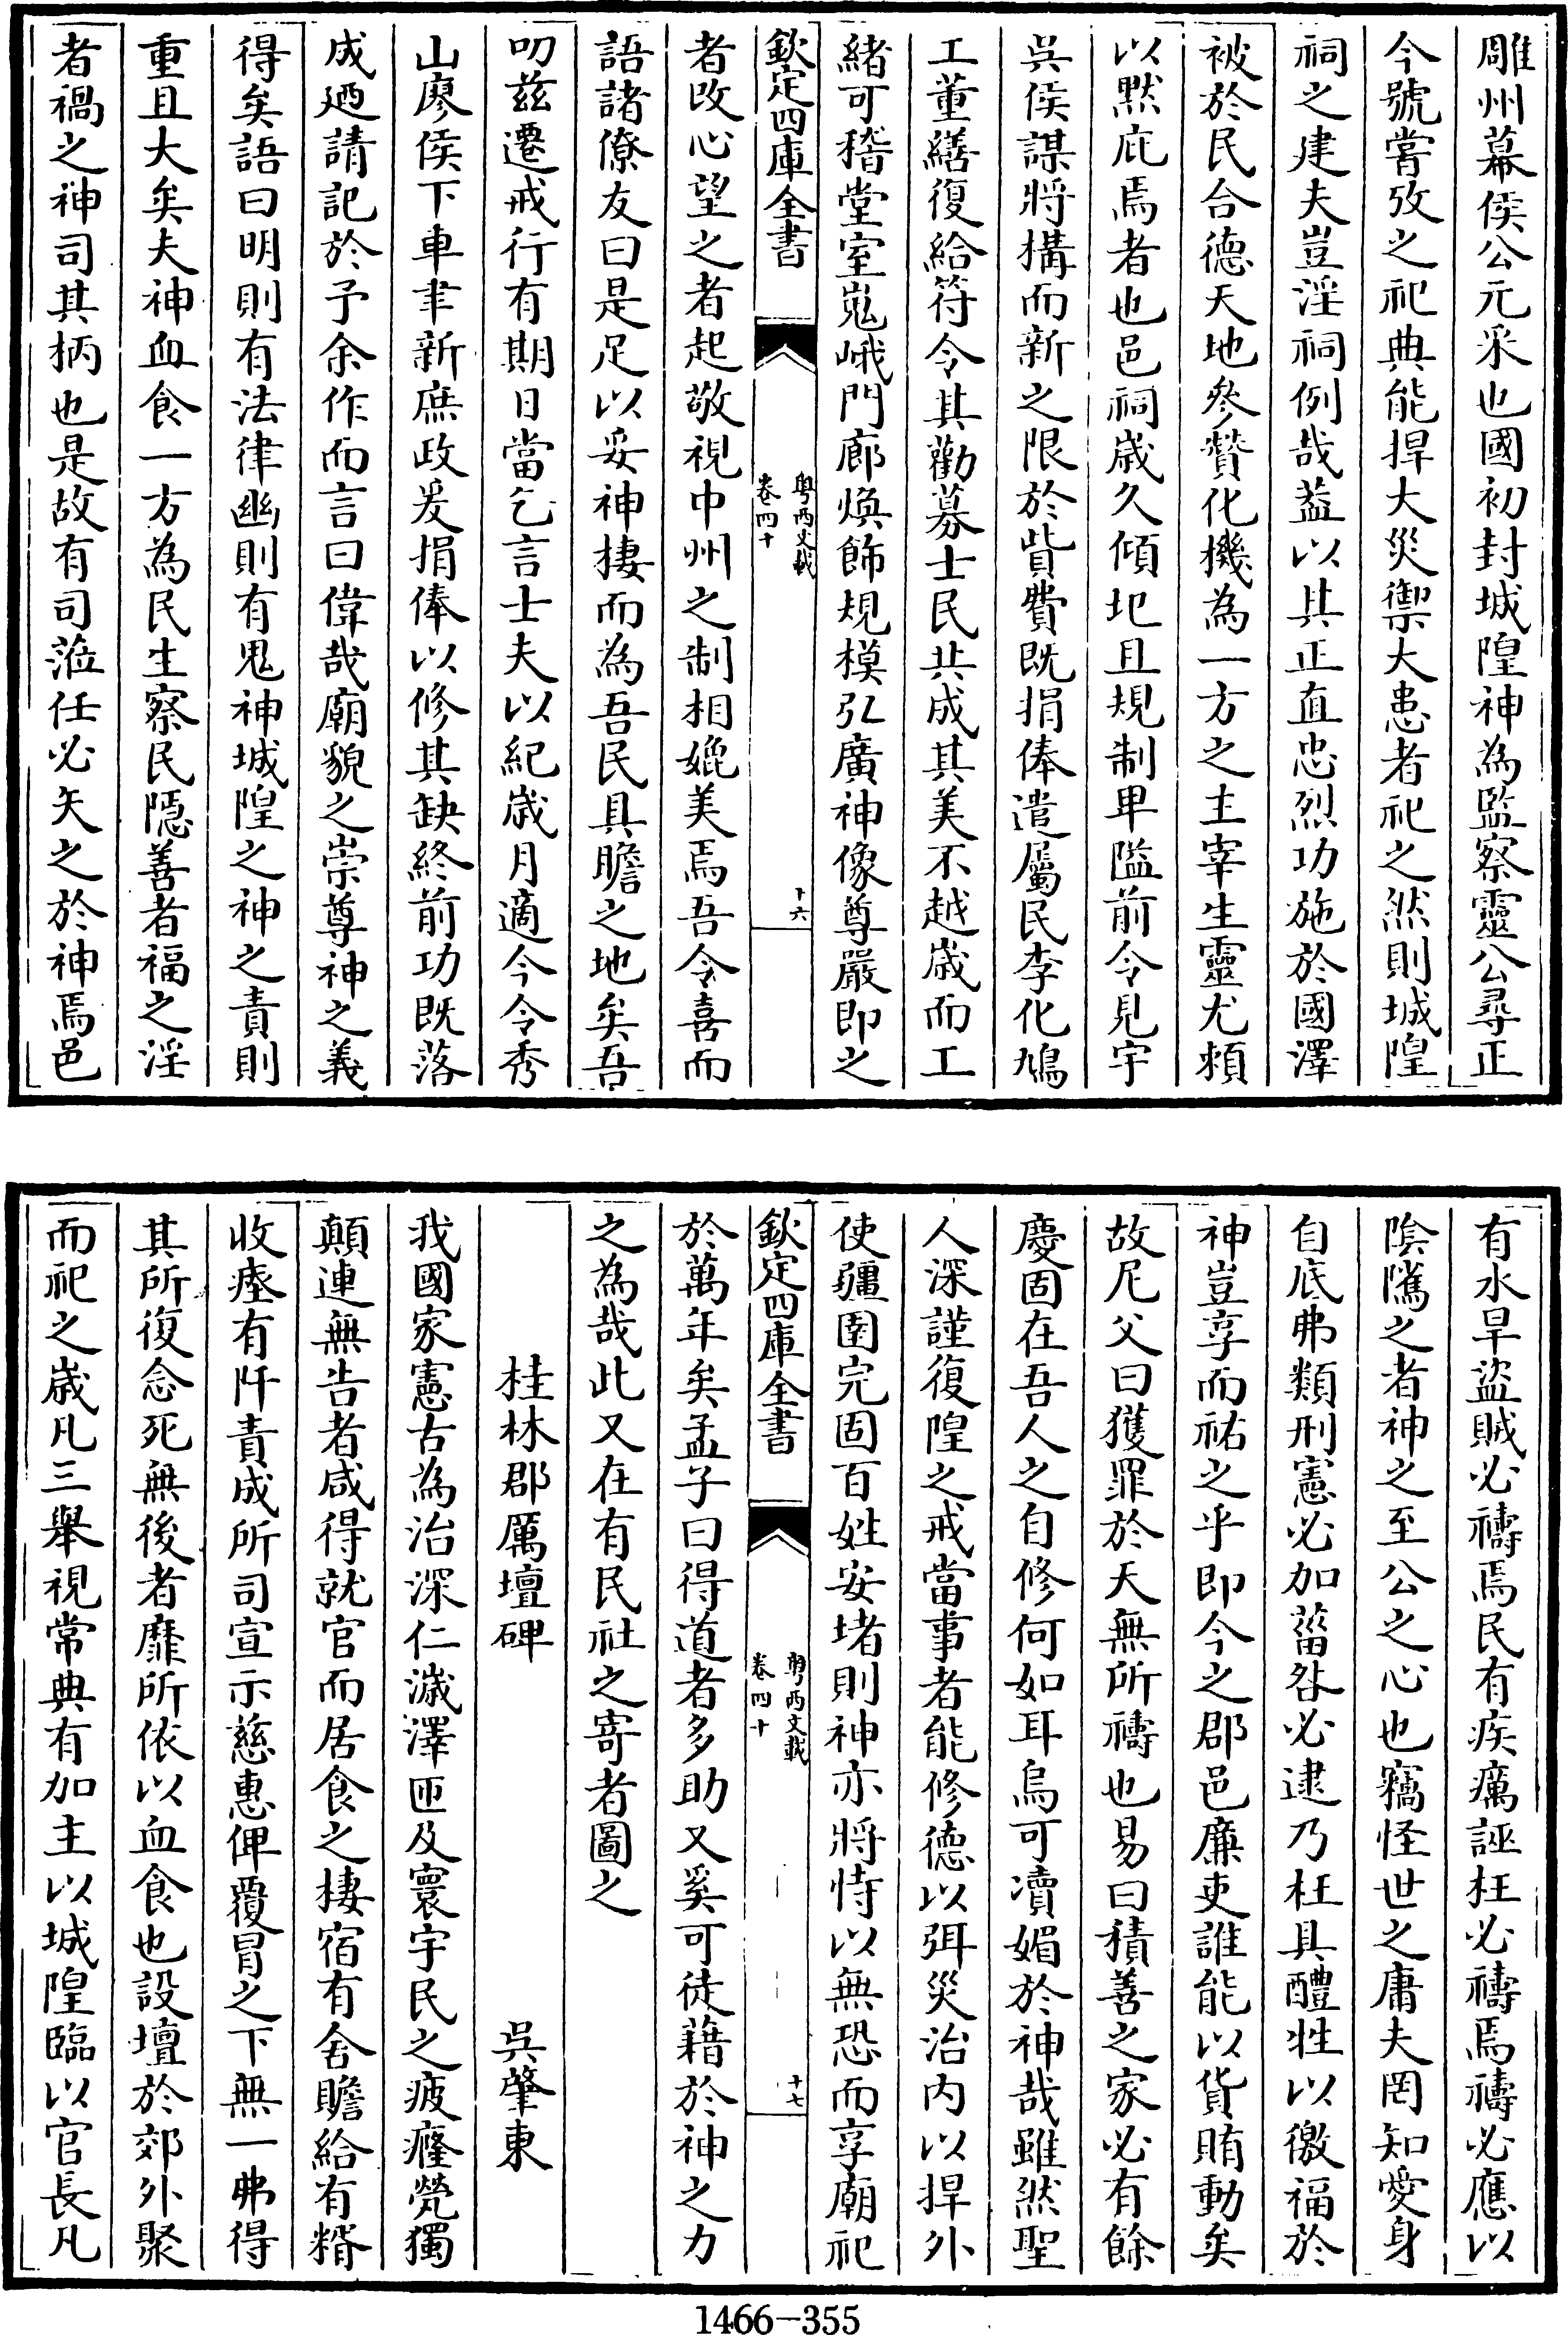 雕州幕侯公元采也國初封城隍神為監察靈公尋正
今號嘗攷之祀典能捍大災禦大患者祀之然則城隍
祠之建夫豈淫祠例哉葢以其正直忠烈功施於國澤
被於民合德天地參贊化機為一方之主宰生靈尤頼
以黙庇焉者也邑祠歳久傾圮且規制卑隘前令見宇
吳侯謀將構而新之限於貲費既捐俸遣屬民李化鳩
工董繕復給符令其勸募士民共成其美不越歳而工
緒可稽堂室嵬峨門廊煥飾規模弘廣神像尊嚴即之
欽定四庫全書
粤西文載
卷四十
十六
者改心望之者起敬視中州之制相媲美焉吾令喜而
語諸僚友曰是足以妥神棲而為吾民具瞻之地矣吾
叨兹遷戒行有期日當乞言士夫以紀歳月適今令秀
山廖侯下車聿新庶政爰捐俸以修其缺終前功既落
成廼請記於予余作而言曰偉哉廟貌之崇尊神之義
得矣語曰明則有法律幽則有鬼神城隍之神之責則
重且大矣夫神血食一方為民生察民隱善者福之淫
者禍之神司其柄也是故有司蒞任必矢之於神焉邑
有水旱盜賊必禱焉民有疾癘誣枉必禱焉禱必應以
隂隲之者神之至公之心也竊怪世之庸夫罔知愛身
自底弗類刑憲必加菑咎必逮乃枉具醴牲以徼福於
神豈享而祐之乎即今之郡邑廉吏誰能以貨賄動矣
故尼父曰獲罪於天無所禱也易曰積善之家必有餘
慶固在吾人之自修何如耳烏可凟媚於神哉雖然聖
人深謹復隍之戒當事者能修德以弭災治内以捍外
使疆圉完固百姓安堵則神亦將恃以無恐而享廟祀
欽定四庫全書
粤西文載
卷四十
十七
於萬年矣孟子曰得道者多助又奚可徒藉於神之力
之為哉此又在有民社之寄者圖之
桂林郡厲壇碑 吳肇東
我國家憲古為治深仁濊澤匝及寰宇民之疲癃煢獨
顛連無告者咸得就官而居食之棲宿有舍贍給有糈
收瘞有阡責成所司宣示慈惠俾覆冒之下無一弗得
其所復念死無後者靡所依以血食也設壇於郊外聚
而祀之歳凡三舉視常典有加主以城隍臨以官長凡
1466-355